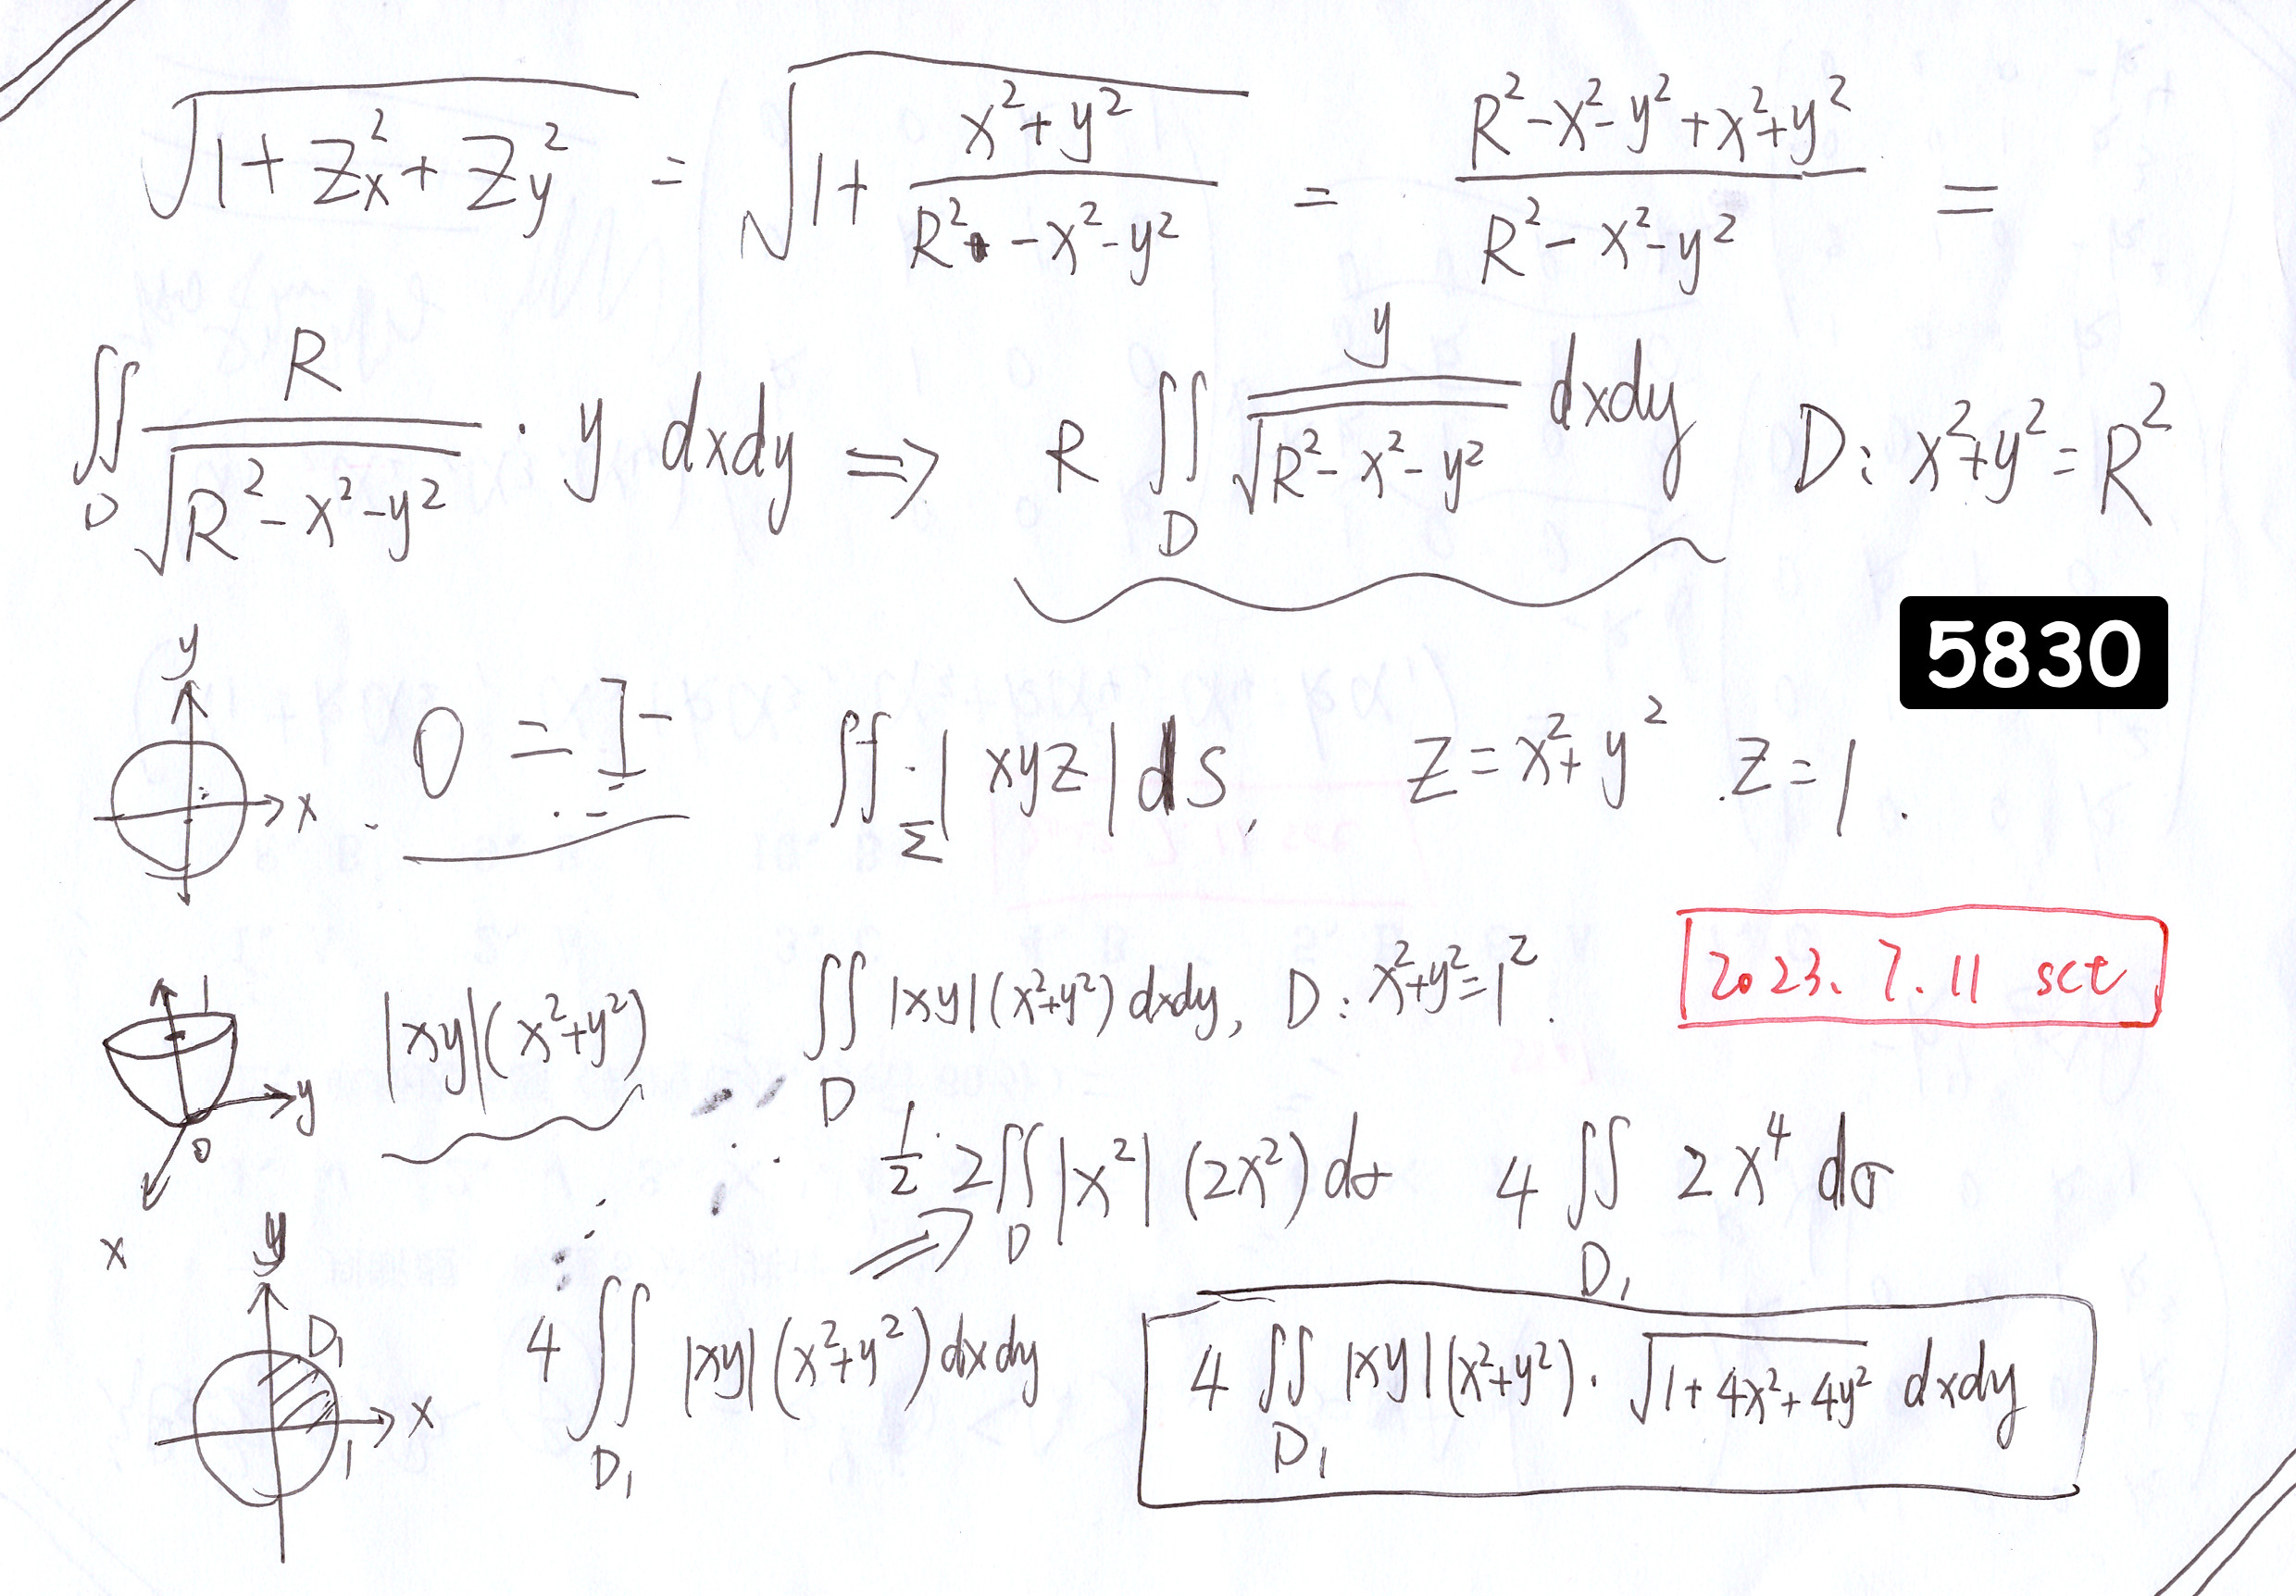 √(1+Zx²+Zy²) = √(1+(x²+y²)/(R²-x²-y²)) = (R²-x²-y²+x²+y²)/(R²-x²-y²) =
∬_D R/√(R²-x²-y²) · y dxdy ⇒ R ∬_D y/√(R²-x²-y²) dxdy D: x²+y²=R²
5830
y
x
0 = I
∬_Σ |xyz| dS, Z=x²+y² Z=1.
2023.7.11 sct
1
y
0
x
|xy|(x²+y²)
∬_D |xy|(x²+y²) dxdy, D: x²+y²=1².
⇒ 1/2·2∬_D |x²|(2x²)dσ 4∬_D₁ 2x⁴ dσ
y
D₁
x
1
4∬_D₁ |xy|(x²+y²)dxdy
4∬_D₁ |xy|(x²+y²)·√(1+4x²+4y²) dxdy